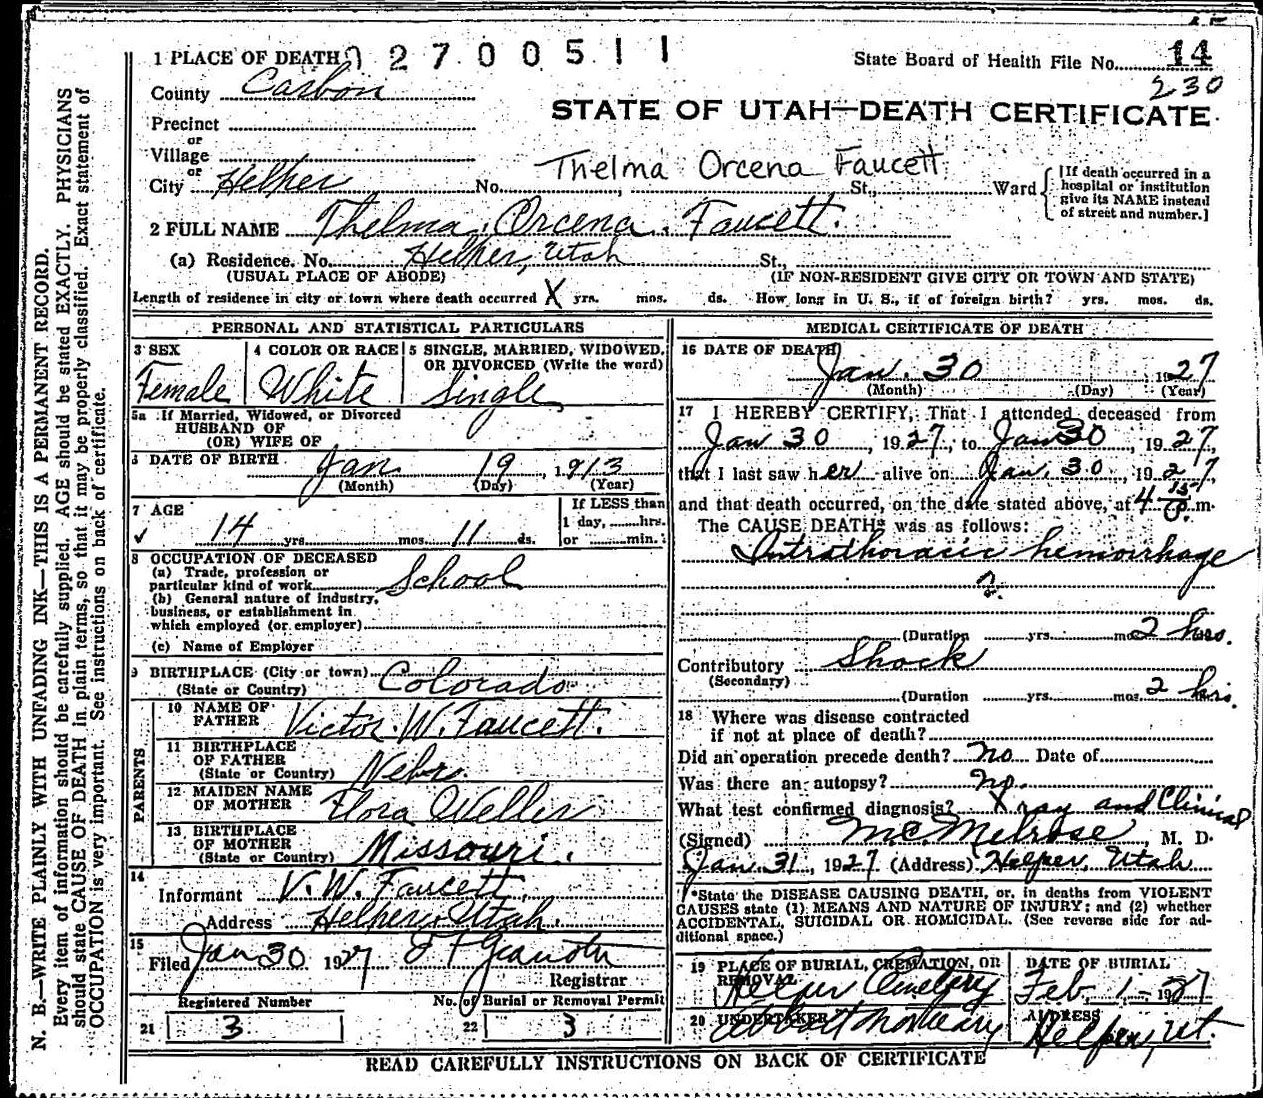 1 PLACE OF DEATH 2 7 0 0 5 1 1
State Board of Health File No. 14
230
County Carbon
STATE OF UTAH—DEATH CERTIFICATE
Precinct
or
Village
or
Thelma Orcena Faucett
City Helper No. St., Ward
[If death occurred in a
hospital or institution
give its NAME instead
of street and number.]
2 FULL NAME Thelma Orcena Faucett.
(a) Residence. No. Helper, Utah St.,
(USUAL PLACE OF ABODE) (IF NON-RESIDENT GIVE CITY OR TOWN AND STATE)
Length of residence in city or town where death occurred X yrs. mos. ds. How long in U. S., if of foreign birth? yrs. mos. ds.
PERSONAL AND STATISTICAL PARTICULARS
3 SEX
Female
4 COLOR OR RACE
White
5 SINGLE, MARRIED, WIDOWED,
OR DIVORCED (Write the word)
Single
5a If Married, Widowed, or Divorced
HUSBAND OF
(OR) WIFE OF
6 DATE OF BIRTH Jan 19, 1913
(Month) (Day) (Year)
7 AGE
14 yrs. mos. 11 ds.
If LESS than
1 day, hrs.
or min.
8 OCCUPATION OF DECEASED
(a) Trade, profession or
particular kind of work School
(b) General nature of industry,
business, or establishment in
which employed (or employer)
(c) Name of Employer
9 BIRTHPLACE (City or town) Colorado
(State or Country)
PARENTS
10 NAME OF
FATHER Victor W. Faucett.
11 BIRTHPLACE
OF FATHER
(State or Country) Nebr.
12 MAIDEN NAME
OF MOTHER Flora Weller
13 BIRTHPLACE
OF MOTHER
(State or Country) Missouri.
14
Informant V. W. Faucett
Address Helper, Utah.
15
Filed Jan 30 1927
Registrar
Registered Number
21 3
No. of Burial or Removal Permit
22 3
MEDICAL CERTIFICATE OF DEATH
16 DATE OF DEATH
Jan. 30 1927
(Month) (Day) (Year)
17 I HEREBY CERTIFY, That I attended deceased from
Jan 30, 1927, to Jan 30, 1927,
that I last saw her alive on Jan. 30, 1927,
and that death occurred, on the date stated above, at 4 15 P. m.
The CAUSE DEATH* was as follows:
Intrathoracic hemorrhage
?
(Duration yrs. mos. 2 hrs.
Contributory Shock
(Secondary)
(Duration yrs. mos. 2 hrs.
18 Where was disease contracted
if not at place of death?
Did an operation precede death? no Date of
Was there an autopsy? no.
What test confirmed diagnosis? X ray and Clinical
(Signed) M.C. Melrose M. D.
Jan 31, 1927 (Address) Helper, Utah
*State the DISEASE CAUSING DEATH, or, in deaths from VIOLENT
CAUSES state (1) MEANS AND NATURE OF INJURY; and (2) whether
ACCIDENTAL, SUICIDAL OR HOMICIDAL. (See reverse side for ad-
ditional space.)
19 PLACE OF BURIAL, CREMATION, OR
REMOVAL
Helper Cemetery
DATE OF BURIAL
Feb. 1- 1927
20 UNDERTAKER
ADDRESS
Helper, Ut.
READ CAREFULLY INSTRUCTIONS ON BACK OF CERTIFICATE
N. B.—WRITE PLAINLY WITH UNFADING INK—THIS IS A PERMANENT RECORD.
Every item of information should be carefully supplied. AGE should be stated EXACTLY. PHYSICIANS
should state CAUSE OF DEATH in plain terms, so that it may be properly classified. Exact statement of
OCCUPATION is very important. See instructions on back of certificate.